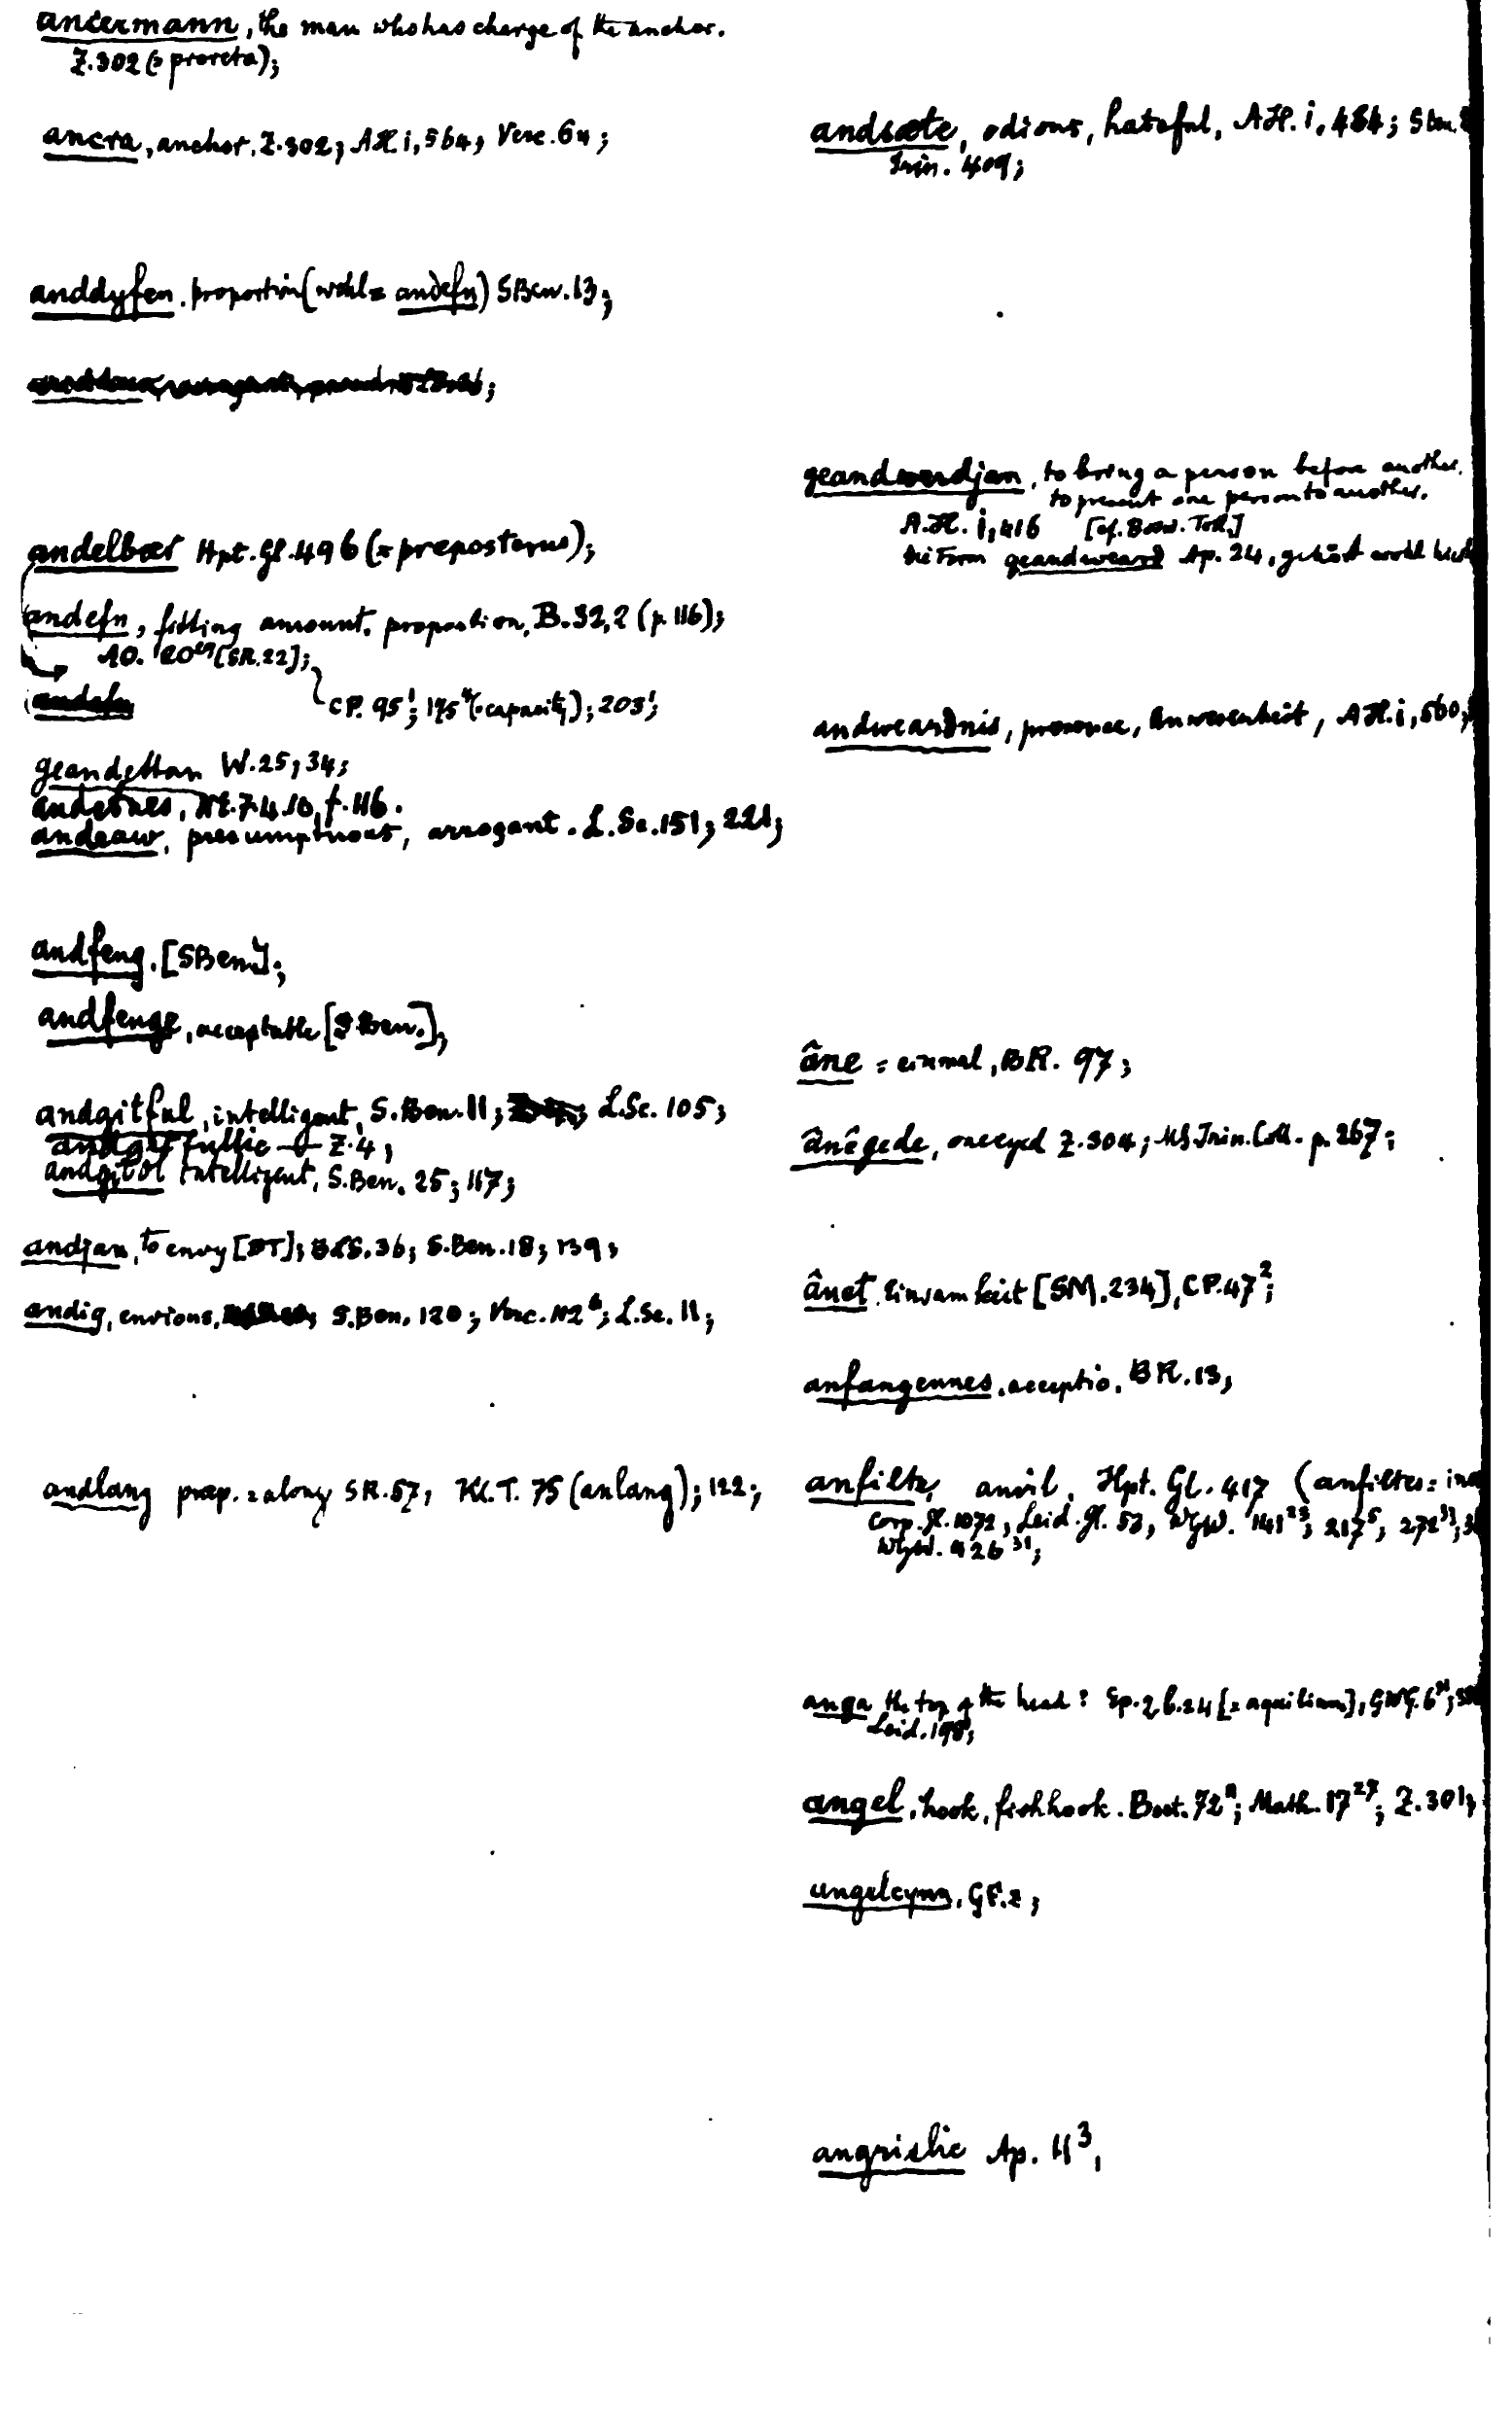 ancermann, the man who has charge of the anchor.
Z.302 (= proreta);
ancra, anchor. Z.302; AH. i, 564; Verc. 64;
anddyfen. proportion (wohl = andefn) SBen. 13;
andelbær Hpt. Gl. 496 (= preposterus);
andefn, fitting amount. proportion, B. 32,2 (p. 116);
AO. [SR.22];
CP. 95¹; (= capacity); 203¹;
geandettan W. 25, 34;
andetnes, 74.10, f. 116.
andeaw, presumptuous, arrogant. L.Sc. 151; 221;
andfeng. [SBen.];
andfenge, acceptable [SBen.],
andgitful, intelligent, S.Ben. 11; L.Sc. 105;
andgitfullic Z. 4;
andgitol intelligent, S.Ben. 25; 117;
andjan, to envy [BT]; 36; S.Ben. 18; 139;
andig, envious, S.Ben. 120; Verc. 112⁶; L.Sc. 11;
andlang præp. = along SR. 57, Kl.T. 75 (anlang); 122;
andsæte, odious, hateful, AH. i, 484;
409;
geandwerdjan, to bring a person before another.
to present one person to another.
A.H. i, 416 [cf. Bosw. Toll.]
die Form geandweard Ap. 24, gehört wohl
andweardnis, presence, Anwesenheit, AH. i, 560;
âne = einmal, BR. 97;
ânêgede, oneeyed Z. 304; MS Trin. Coll. p. 267;
ânet. Einsamkeit [SM. 234], CP. 47²;
anfangennes. acceptio. BR. 13,
anfilte, anvil, Hpt. Gl. 417 (anfiltes =
Corp. Gl. 1072, Leid. Gl. 53, WGW. 141²³; 217⁵; 272³³;
WGW. 426³¹;
anga the top of the head? Ep. 2.b.24 [= aquilium],
Leid. 198;
angel, hook, fishhook. Boet. 72; Math. 17²⁷; Z. 301;
angelcynn, GF. 2;
angrislic Ap. 11³,